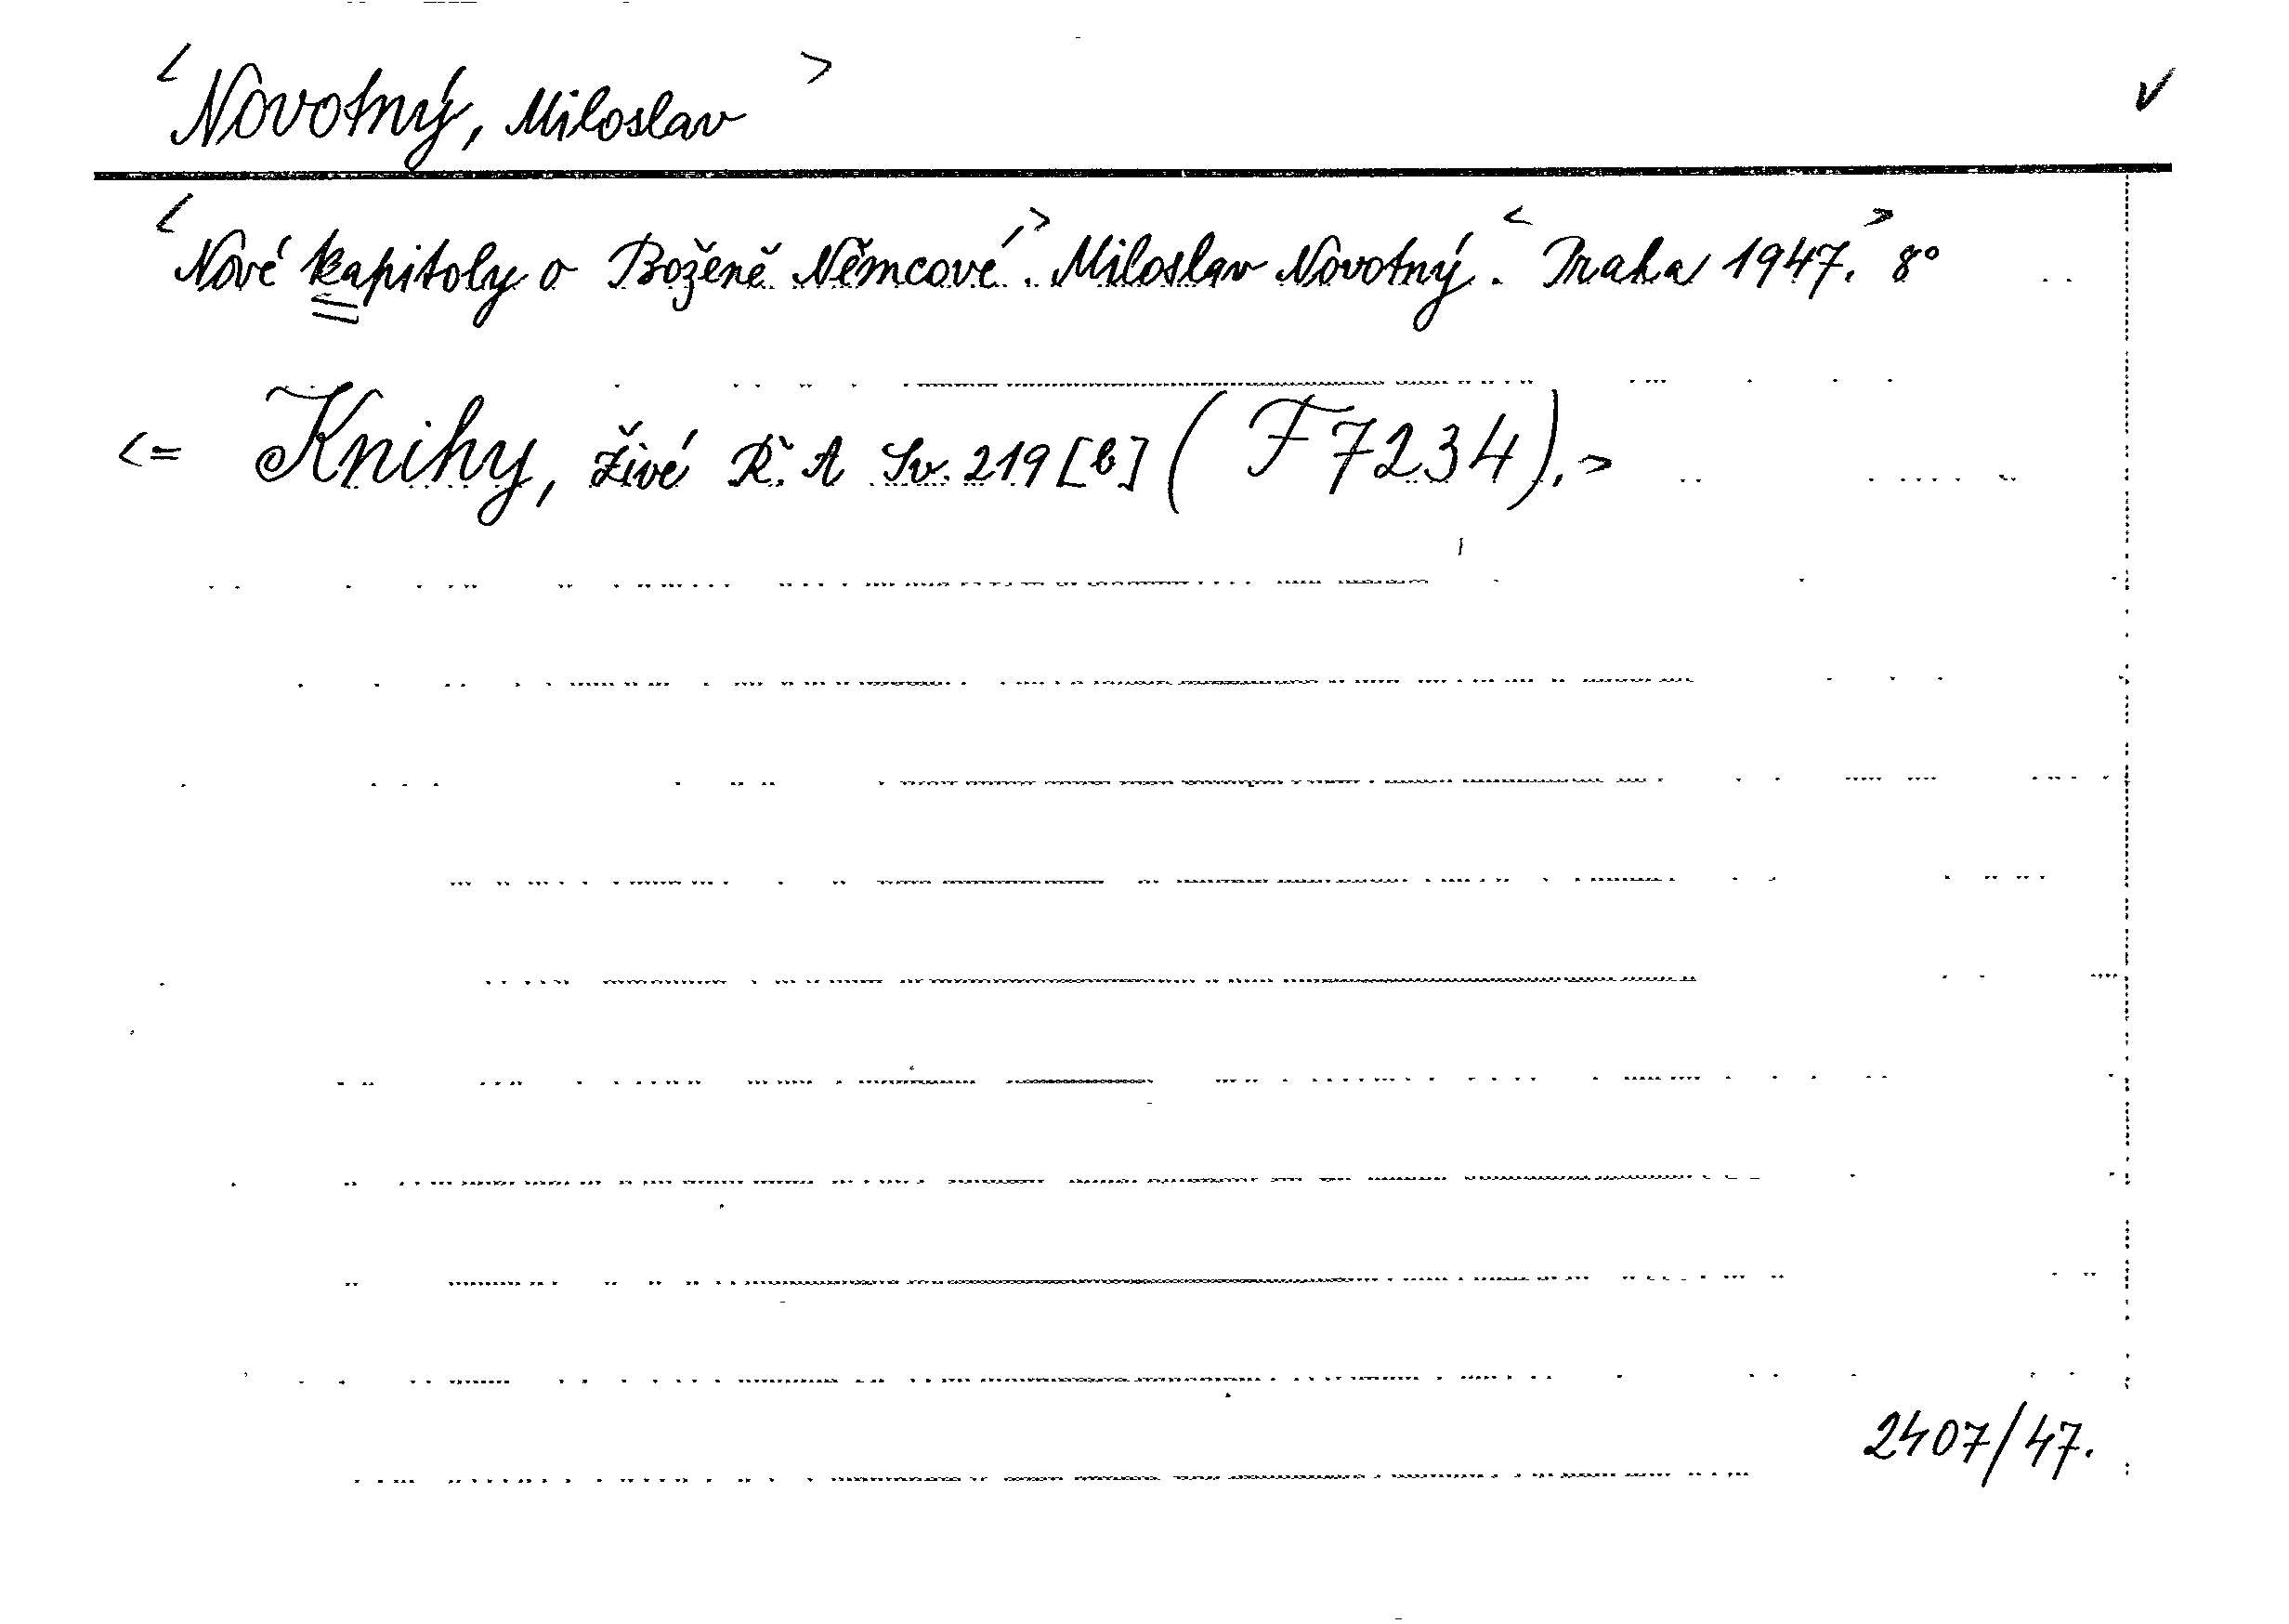 <Novotný, Miloslav> ✓
<Nové kapitoly o Boženě Němcové.> Miloslav Novotný. <Praha 1947.> 8°
<= Knihy, živé Ř. A Sv. 219 [b] (F 7234).>
2407/47.